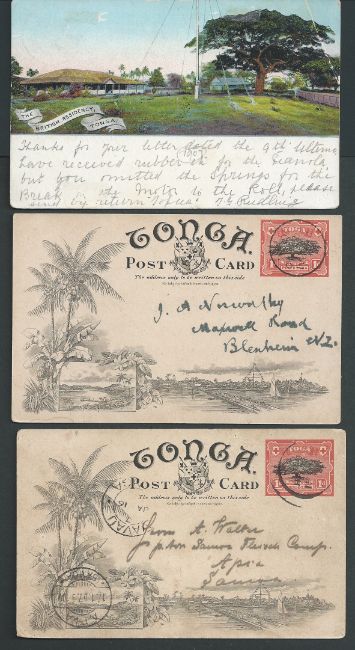 THE
BRITISH RESIDENCY,
TONGA.
Thanks for your letter dated the 9th ultimo
(1907)
have received rubber for the Pianola
but you omitted the Springs for the
Break the Motor to the Roll, please
send by return
TONGA.
POST CARD
The address only to be written on this side
TOGA
1d 1d
J. A Norworthy
Maxwell Road
Blenheim N.Z.
TONGA.
POST CARD
The address only to be written on this side
TOGA
1d 1d
VAVAU
JA
From A. Walter
Samoa Comp.
Apia
Samoa
APIA